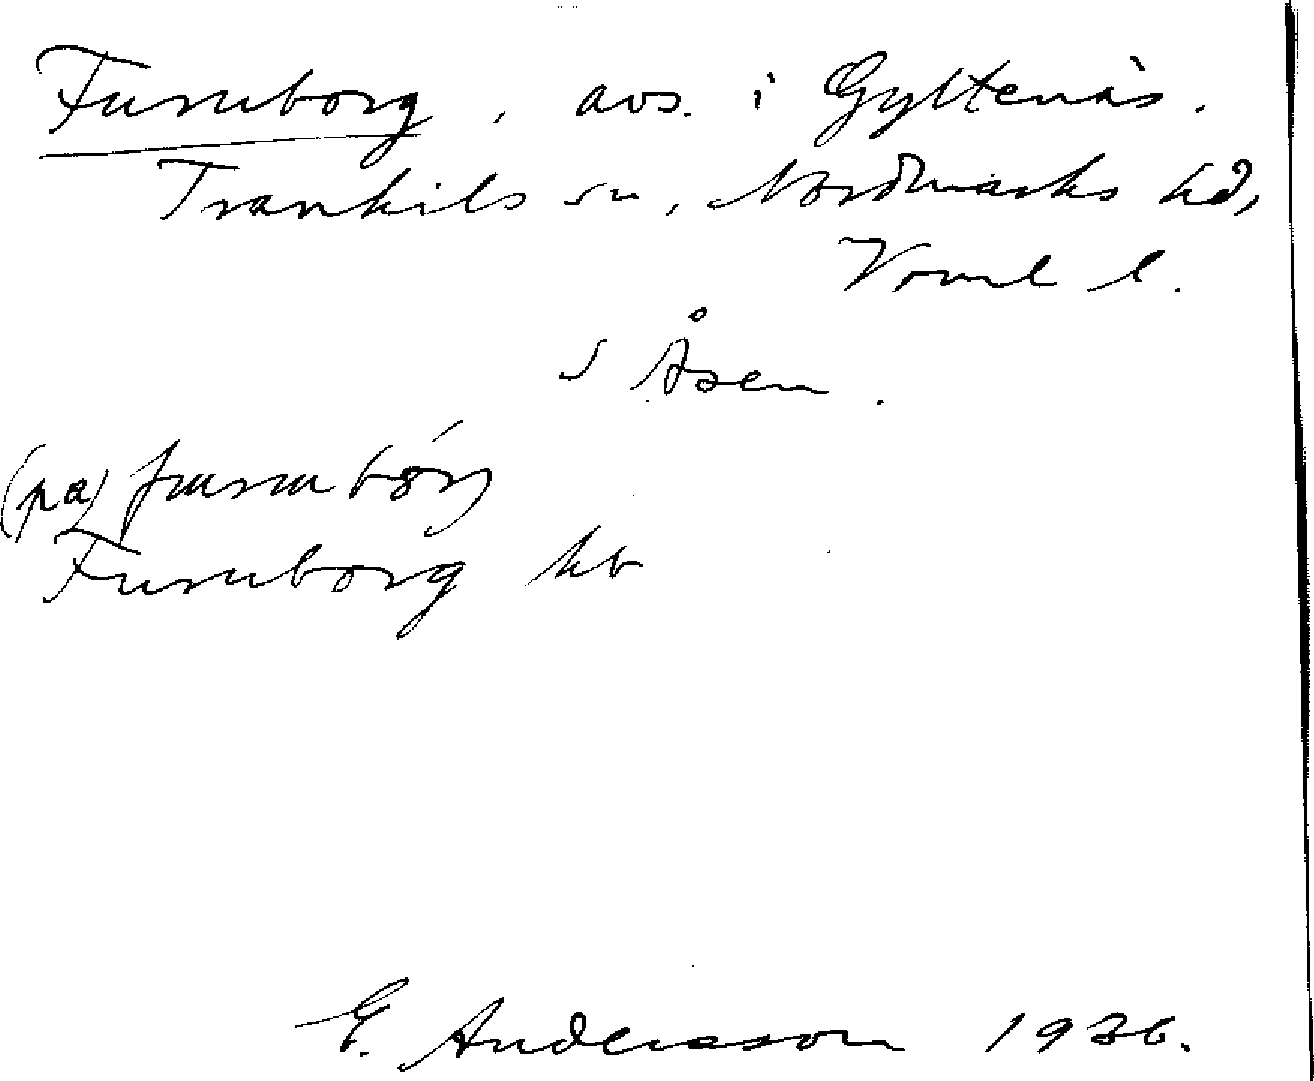 Furuborg, avs. i Gyltenäs.
Trankils sn, Nordmarks hd,
Værml l.
s Åsen.
(pa)
Furuborg kb
E. Andersson 1936.